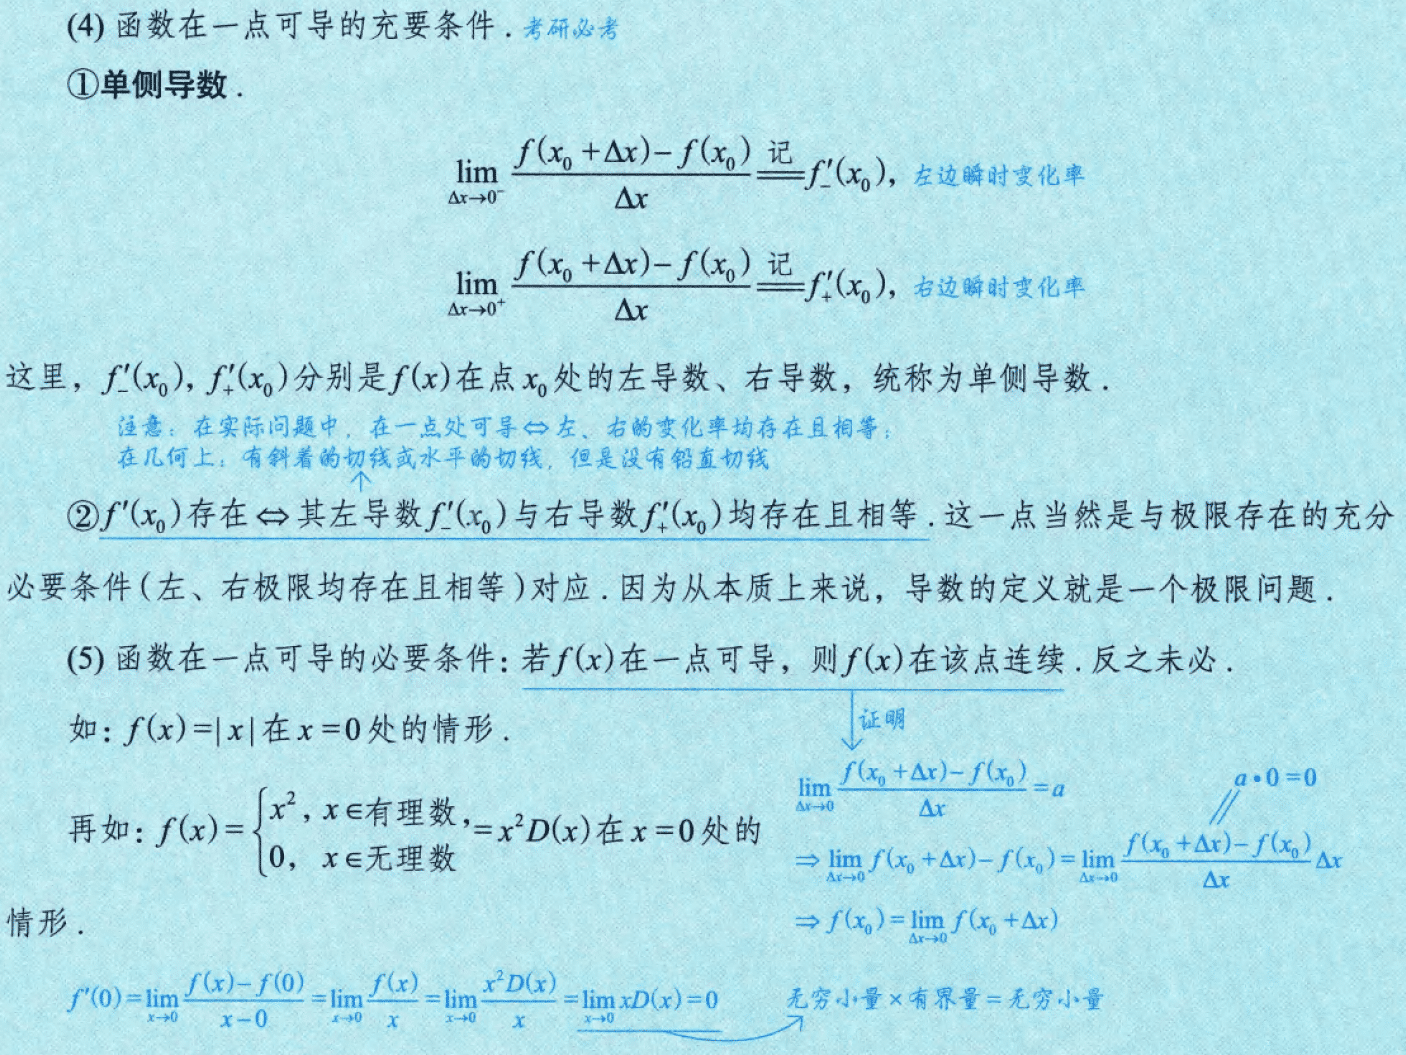 (4) 函数在一点可导的充要条件. 考研必考
①单侧导数.
lim_{Δx→0⁻} \frac{f(x₀+Δx)−f(x₀)}{Δx} \xlongequal{记} f′₋(x₀), 左边瞬时变化率
lim_{Δx→0⁺} \frac{f(x₀+Δx)−f(x₀)}{Δx} \xlongequal{记} f′₊(x₀), 右边瞬时变化率
这里, f′₋(x₀), f′₊(x₀)分别是f(x)在点x₀处的左导数、右导数, 统称为单侧导数.
注意: 在实际问题中, 在一点处可导⇔左、右的变化率均存在且相等;
在几何上: 有斜着的切线或水平的切线, 但是没有铅直切线
②f′(x₀)存在⇔其左导数f′₋(x₀)与右导数f′₊(x₀)均存在且相等.这一点当然是与极限存在的充分
必要条件(左、右极限均存在且相等)对应.因为从本质上来说, 导数的定义就是一个极限问题.
(5) 函数在一点可导的必要条件: 若f(x)在一点可导, 则f(x)在该点连续.反之未必.
如: f(x)=|x|在x=0处的情形.
证明
lim_{Δx→0} \frac{f(x₀+Δx)−f(x₀)}{Δx}=a
a•0=0
再如: f(x)={x², x∈有理数, 0, x∈无理数 =x²D(x)在x=0处的
⇒lim_{Δx→0} f(x₀+Δx)−f(x₀)=lim_{Δx→0} \frac{f(x₀+Δx)−f(x₀)}{Δx}Δx
⇒f(x₀)=lim_{Δx→0} f(x₀+Δx)
情形.
f′(0)=lim_{x→0} \frac{f(x)−f(0)}{x−0}=lim_{x→0} \frac{f(x)}{x}=lim_{x→0} \frac{x²D(x)}{x}=lim_{x→0} xD(x)=0 无穷小量×有界量=无穷小量